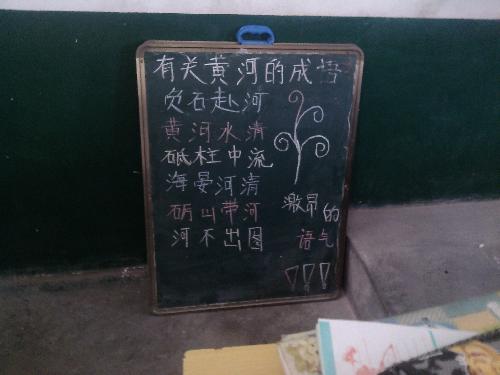 有关黄河的成语
负石赴河
黄河水清
砥柱中流
海晏河清
砺山带河
河不出图
激昂的
语气
!!!